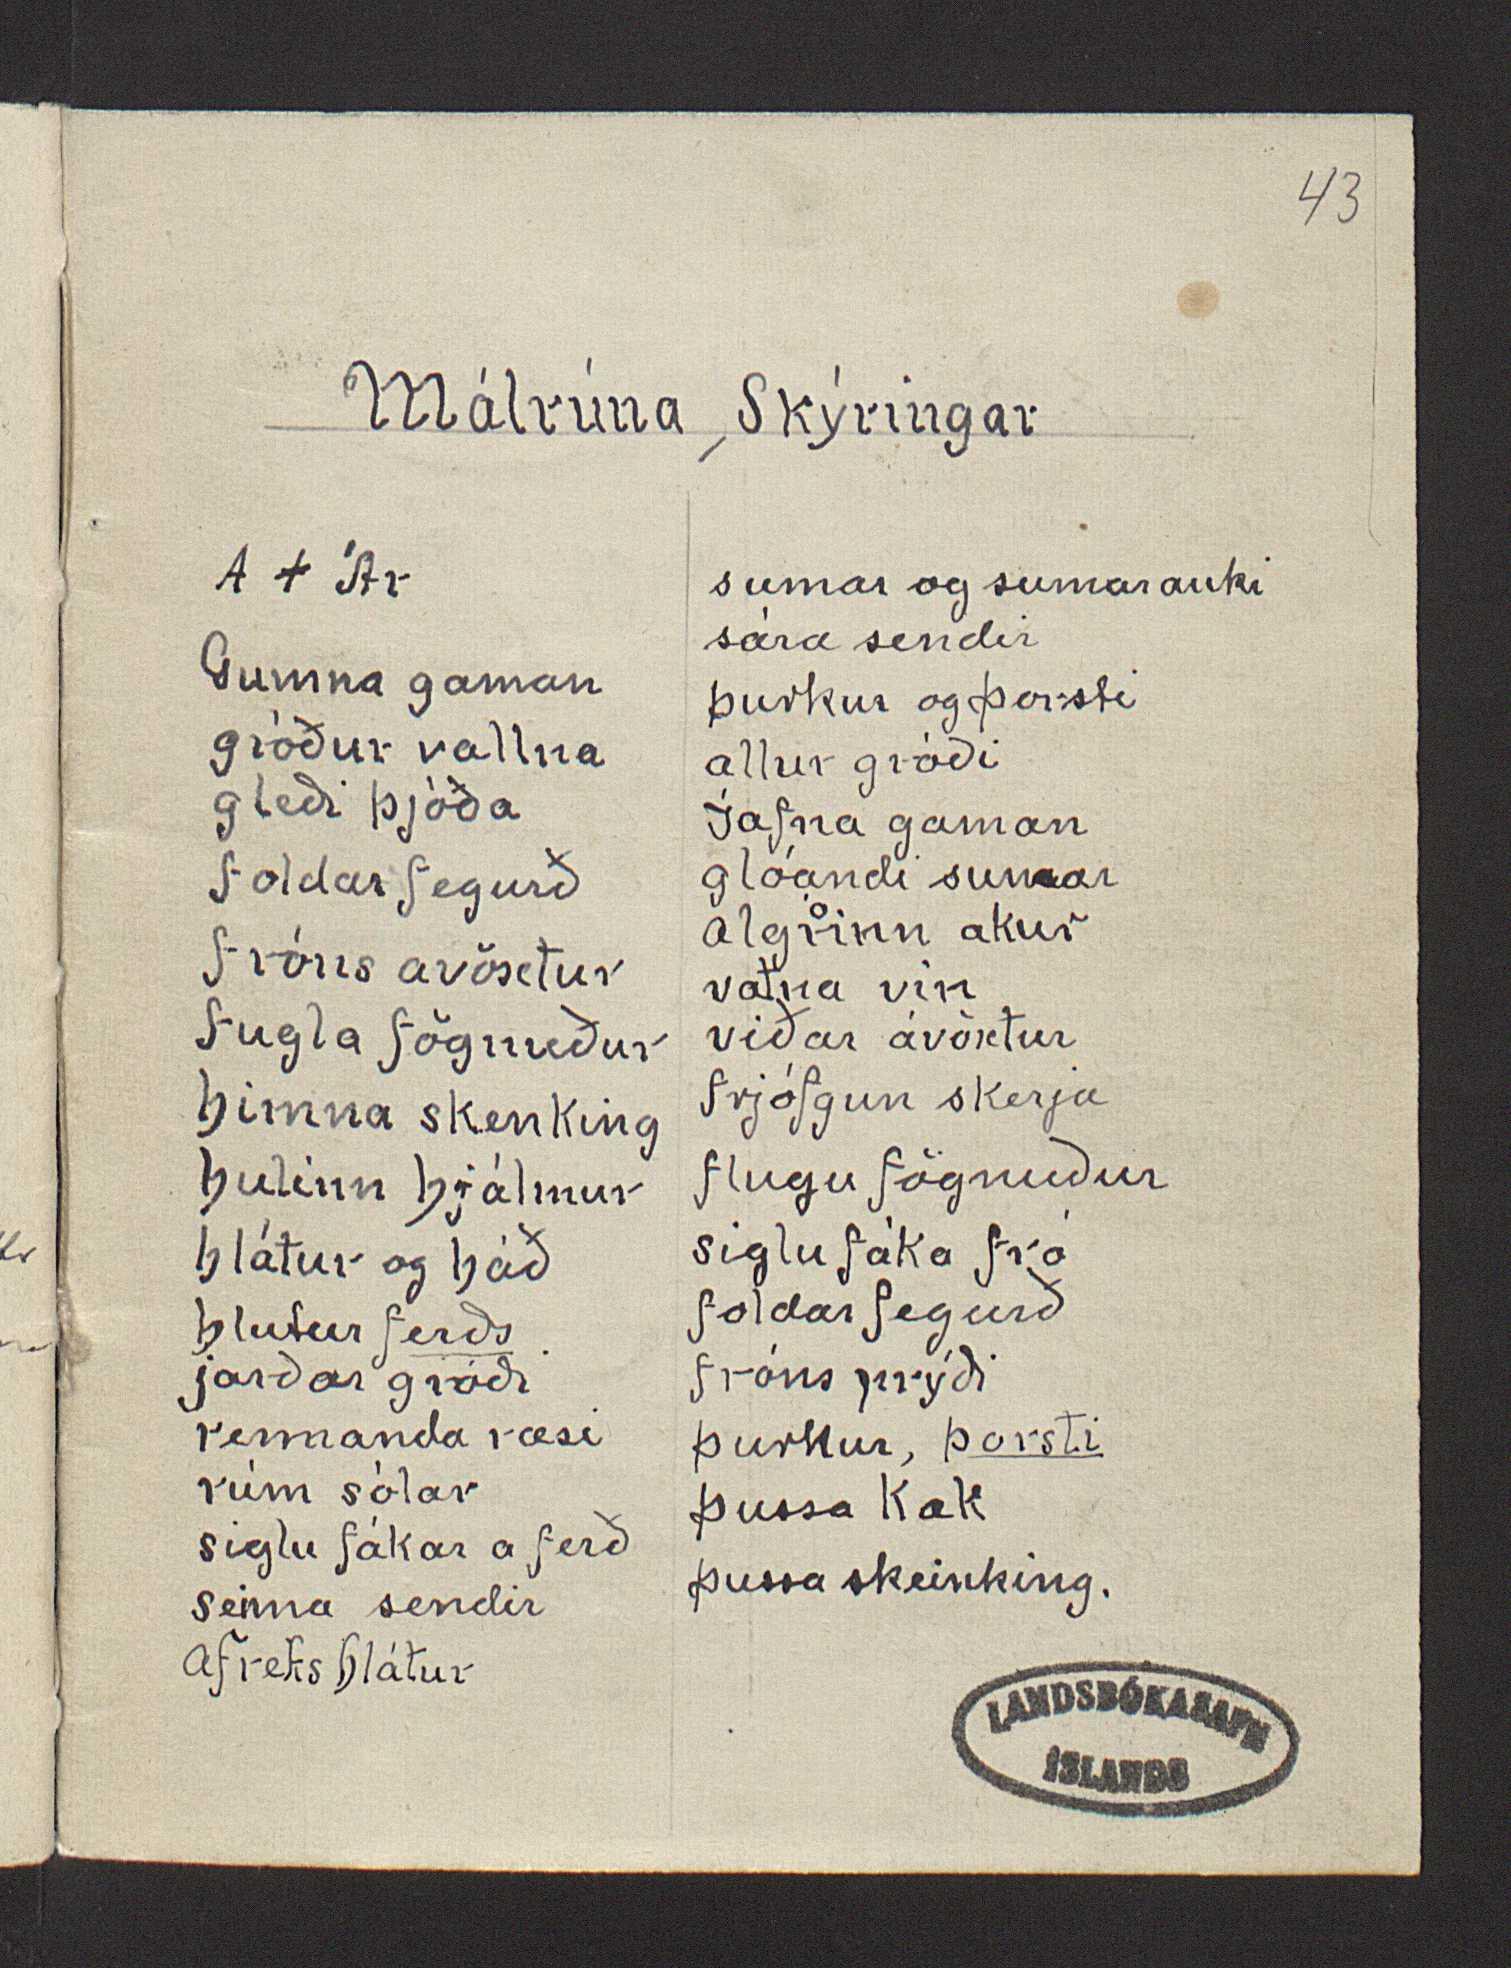 43
Málrúna Skýringar
A ᛅ Ár
Gumna gaman
gróður vallna
gleði þjóða
foldar fegurð
fróns avöxtur
fugla fögnuður
himna skenking
hulinn hjálmur
hlátur og háð
hlutur ferðs
jarðar gróði
rennanda ræsi
rúm sólar
siglu fákar a ferð
seima sendir
afreks hlátur
sumar og sumarauki
sára sendir
þurkur og þorsti
allur gróði
jafna gaman
glóandi sumar
algróinn akur
vatna vin
viðar ávöxtur
frjófgun skerja
flugu fögnuður
siglu fáka fró
foldar fegurð
fróns prýði
þurkur, þorsti
þussa kak
þussa skeinking.
LANDSBÓKASAFN
ÍSLANDS